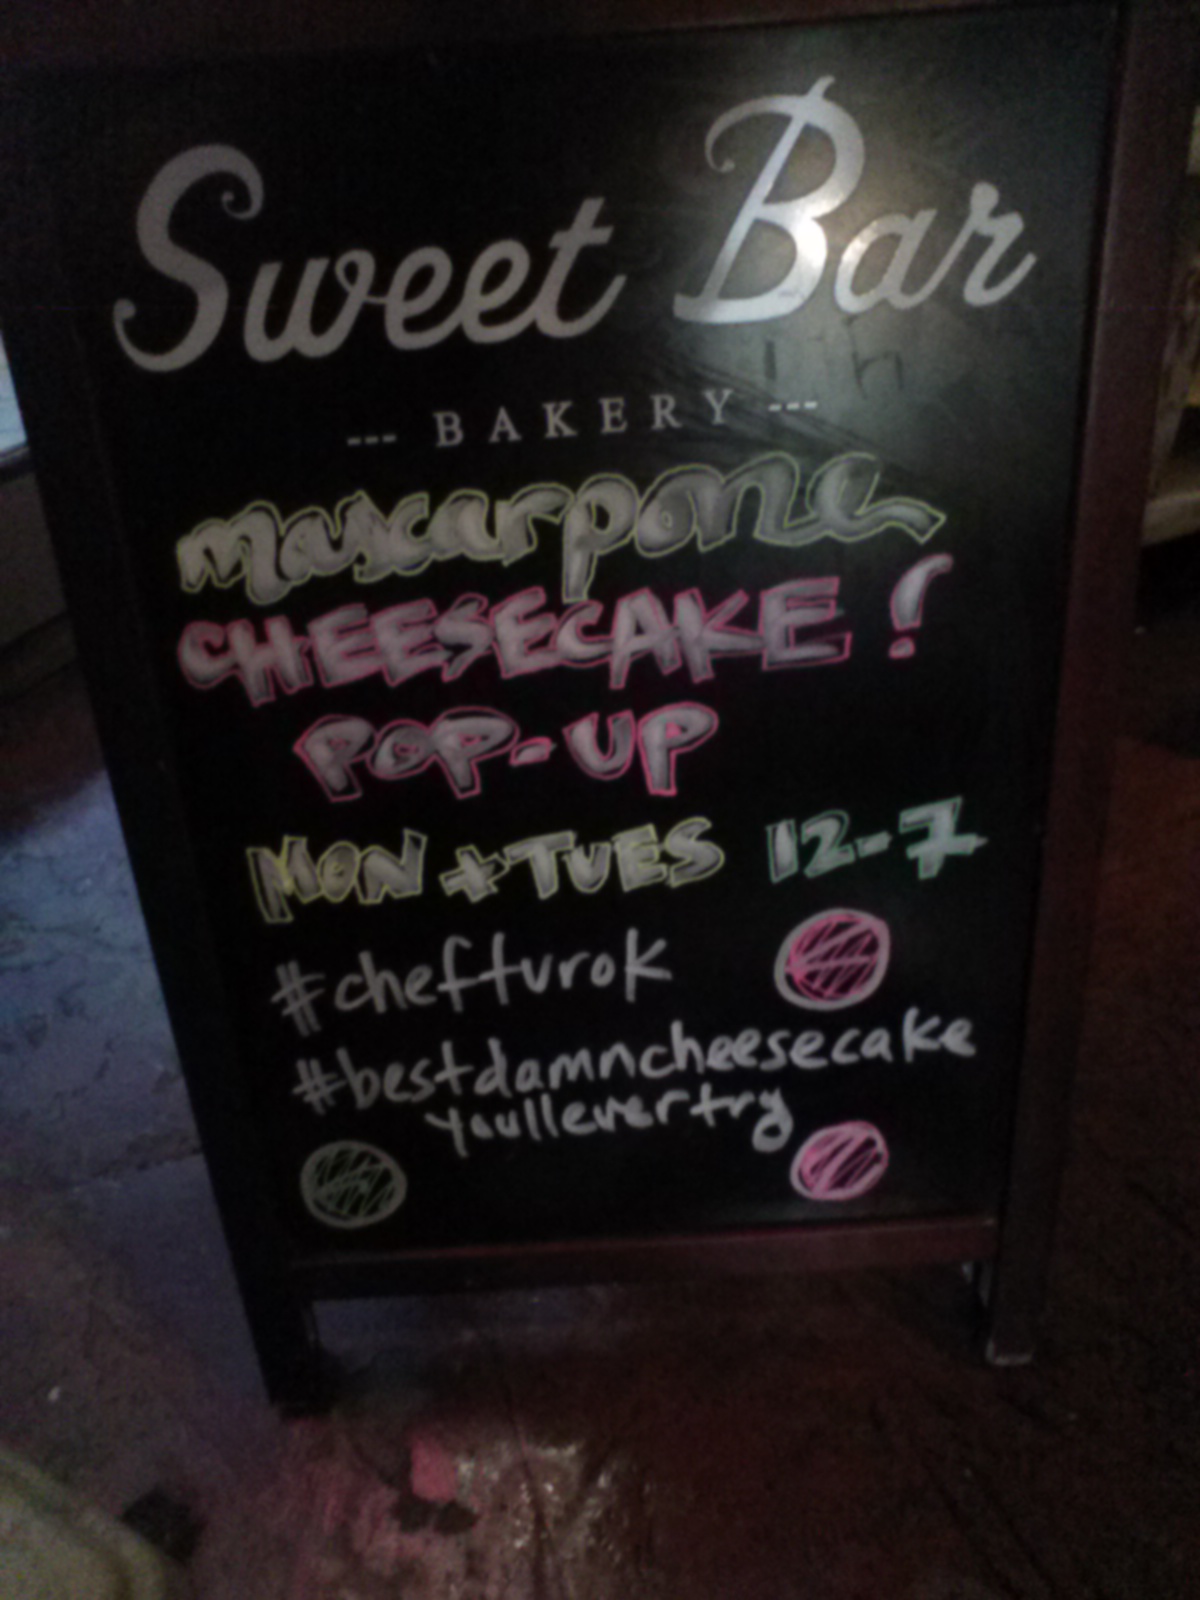 Sweet Bar
--- BAKERY ---
mascarpone
CHEESECAKE!
POP-UP
MON + TUES 12-7
#chefturok
#bestdamncheesecake
youllevertry